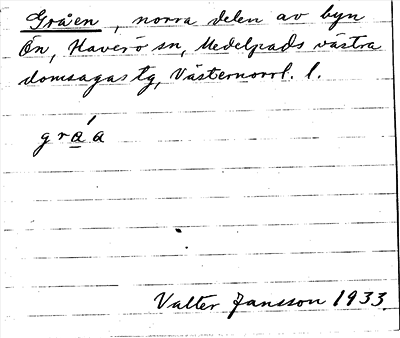 Gråen, norra delen av byn
Ön, Haverö sn, Medelpads västra
domsagas tg, Västernorrl. l.
gra̲´a
Valter Jansson 1933.